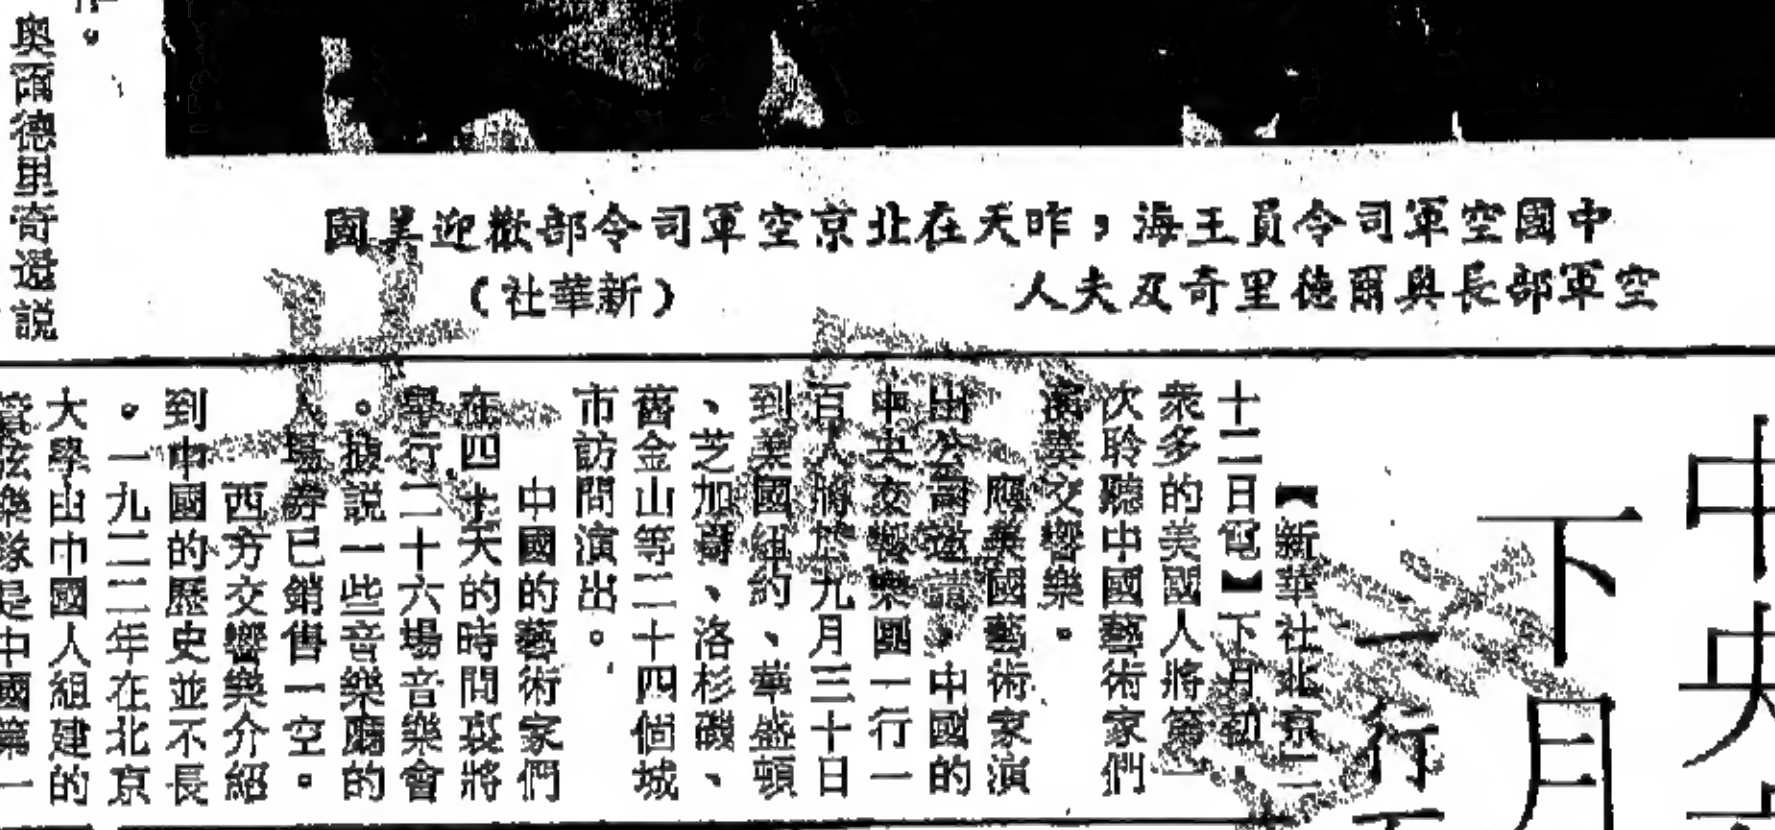 中國空軍司令員王海，昨天在北京空軍司令部歡迎美國
空軍部長奧爾德里奇及夫人
（新華社）
中央
下月
一行
【新華社北京二
十二日電】下月初，
衆多的美國人將第一
次聆聽中國藝術家們
演奏交響樂。
應美國藝術家演
出公司邀請，中國的
中央交響樂團一行一
百人將於九月三十日
到美國紐約、華盛頓
、芝加哥、洛杉磯、
舊金山等二十四個城
市訪問演出。
中國的藝術家們
在四十天的時間裏將
舉行二十六場音樂會
。據説一些音樂廳的
入場券已銷售一空。
西方交響樂介紹
到中國的歷史並不長
。一九二二年在北京
大學由中國人組建的
管弦樂隊是中國第一
作。
奧爾德里奇還説